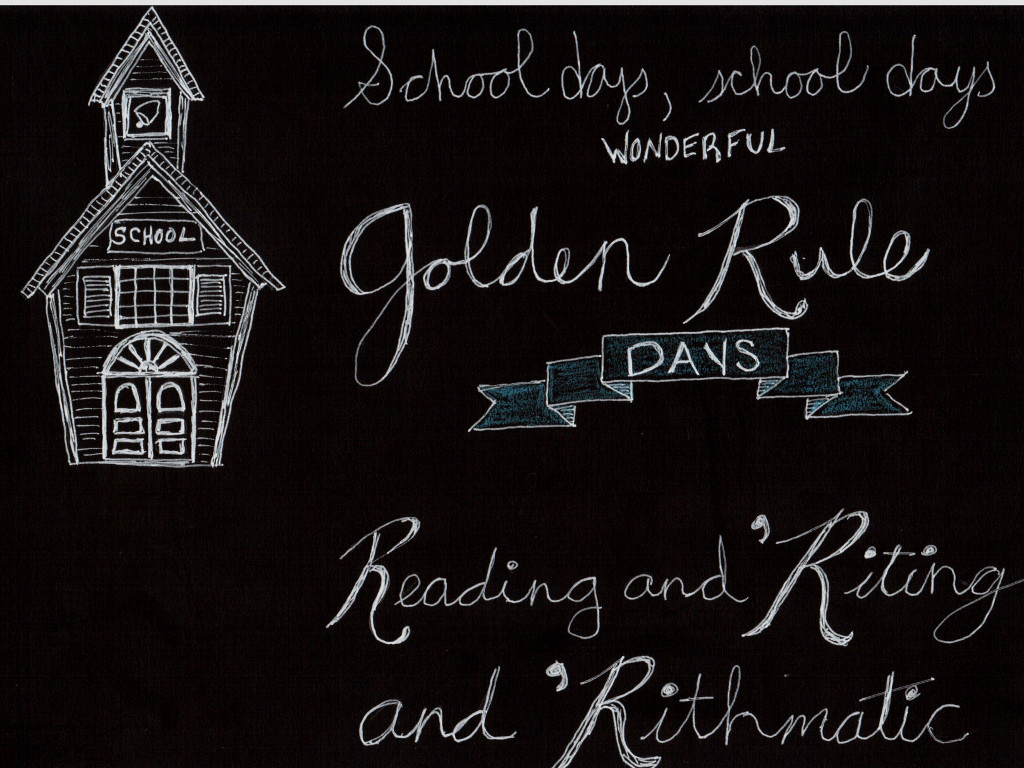 School days, school days
WONDERFUL
Golden Rule
DAYS
Reading and 'Riting
and 'Rithmatic
SCHOOL